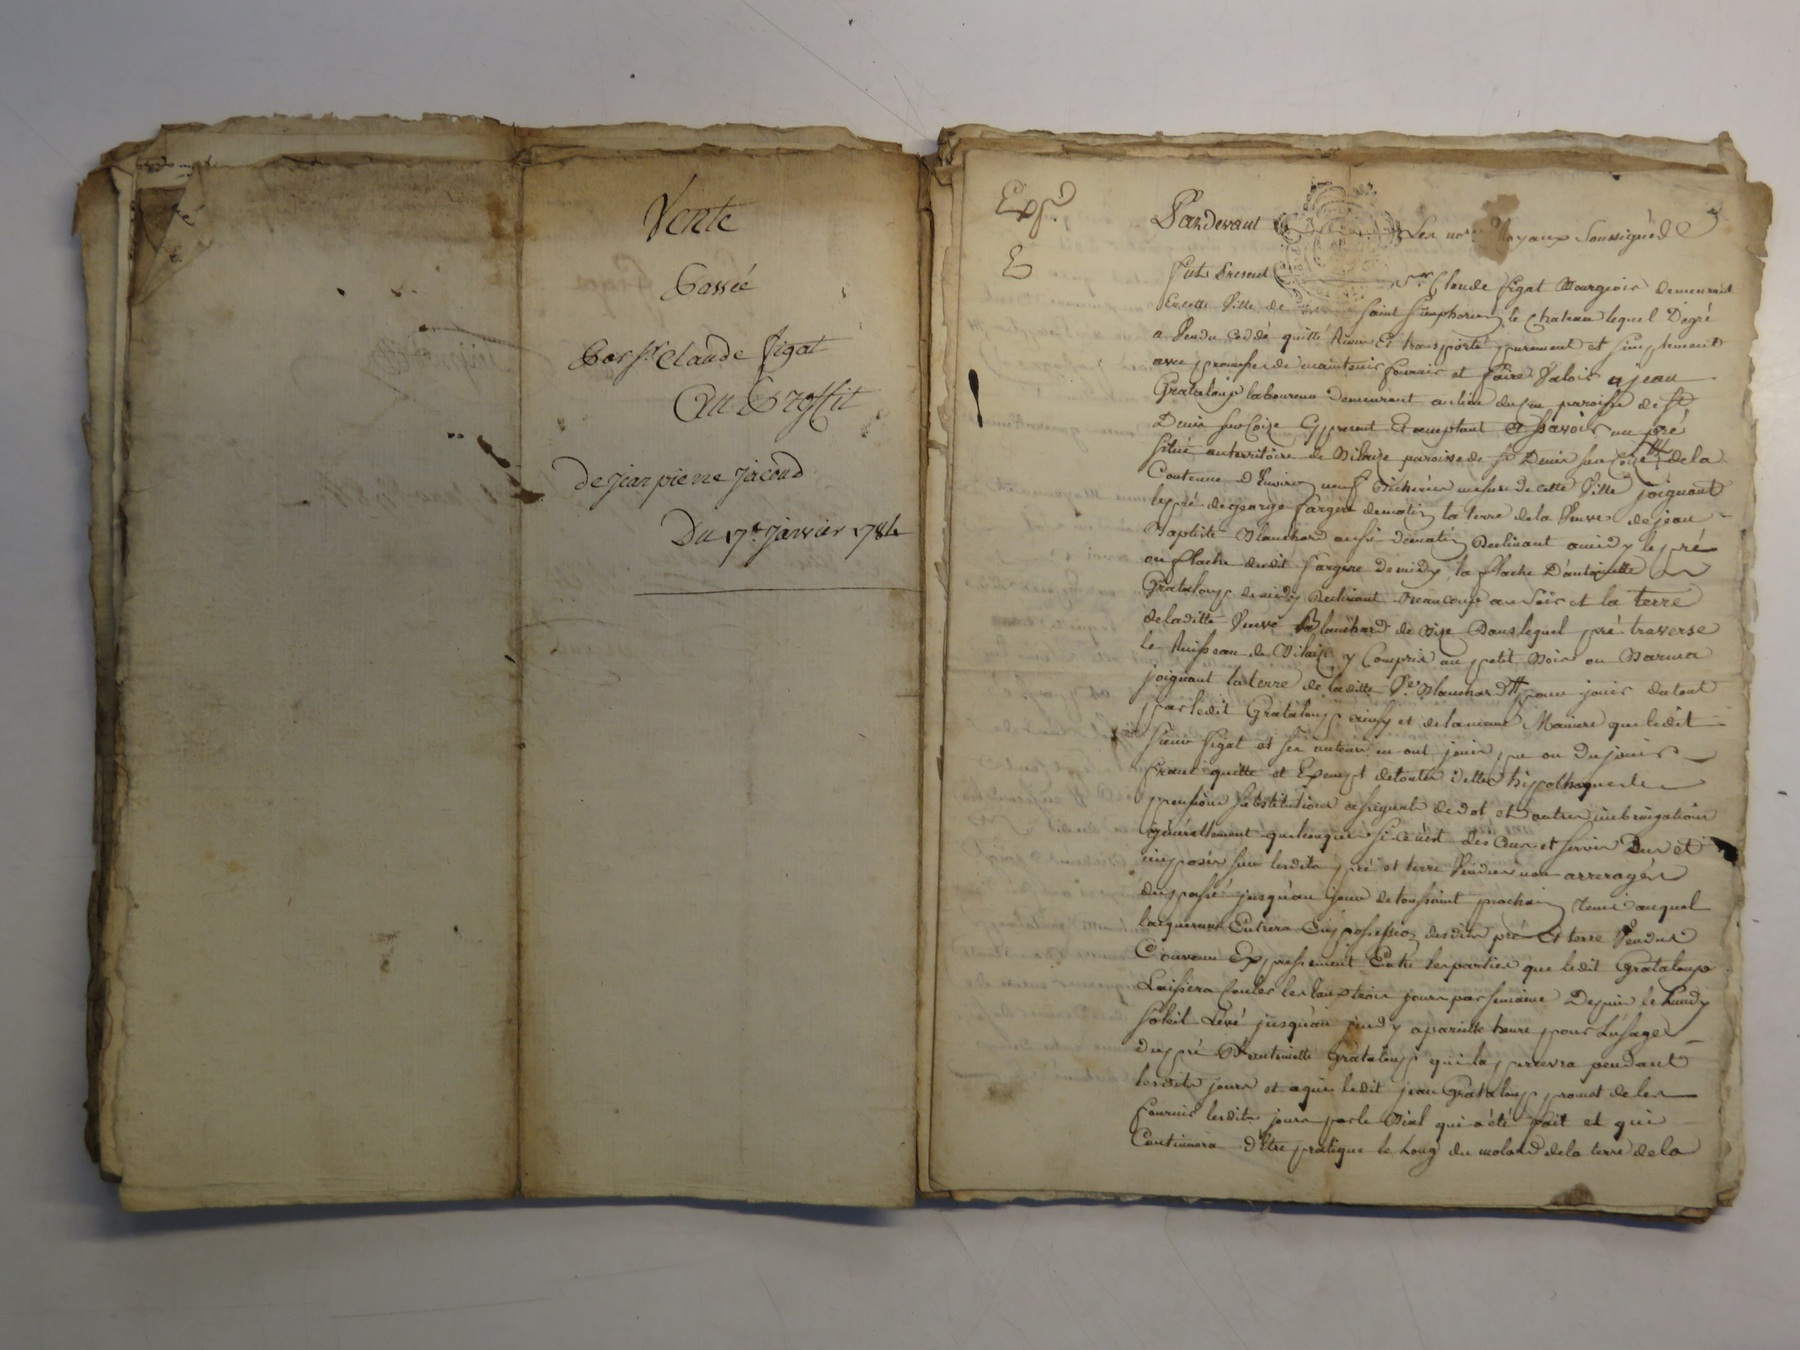 Vente
Passée
Par Sr. Claude Pigat
Au Proffit
de Jean pierre Jacoud
Du 17e. Janvier 1784
Expé.
Pardevant Les nores. Royaux Soussignés
Fut Present Sr. Claude Pigat Bourgeois demeurant
En cette Ville de Saint Simphorien le Chateau lequel Degré
a Vendu Ceddé quitté Remis Et transporté purement et simplement
avec promesse de maintenir fournir et faire Valoir a jean
Grataloup laboureur demeurant au lieu du paroisse de St
Denis sur Coize present Et acceptant A Savoir un pré
situé au territoire de paroisse de St Denis sur Coize de la
Contenue d'Environ neuf Bicherées mesure de cette Ville joignant
le pré de george fargere de matin la terre de la Veuve de jean
Baptiste Blanchard aussi de matin Declinant a midy le pré
ou flache dudit fargere de midy, la flache D'antoinette
Grataloup de midy Declinant Beaucoup au Soir et la terre
de laditte Veuve Blanchard de Bize Dans lequel pré traverse
le Ruisseau de y Compris un petit Bois ou
joignant la terre de laditte Ve. Blanchard pour jouir du tout
par ledit Grataloup ainsy et de la meme Maniere que ledit
Sieur Pigat et ses auteurs en ont jouis, pu ou Du jouir
franc quitte et Exempt de toutes dettes hipotheques
pensions Substitutions de dot et autres
generallement quelconques si ce n'est des Cens et Servis Dus et
imposés sur lesdits pré et terre Vendus non arreragés
du passé jusqu'au jour de toussaint prochain auquel
lacquereur Entrera En possession desdits pré Et terre Vendus
Convenu Expressement Entre les parties que ledit Grataloup
Laissera Couler les Eaux trois jours par Semaine Depuis le Lundy
Soleil Levé jusqu'au jeudy a pareille heure pour L'usage
du pré D'antoinette Grataloup qui la prenra pendant
lesdits jours et a qui ledit jean Grataloup promet de les
fournir lesdits jours par le Bial qui a été fait et qui
Continuera D'être pratiqué le Long du de la terre de la